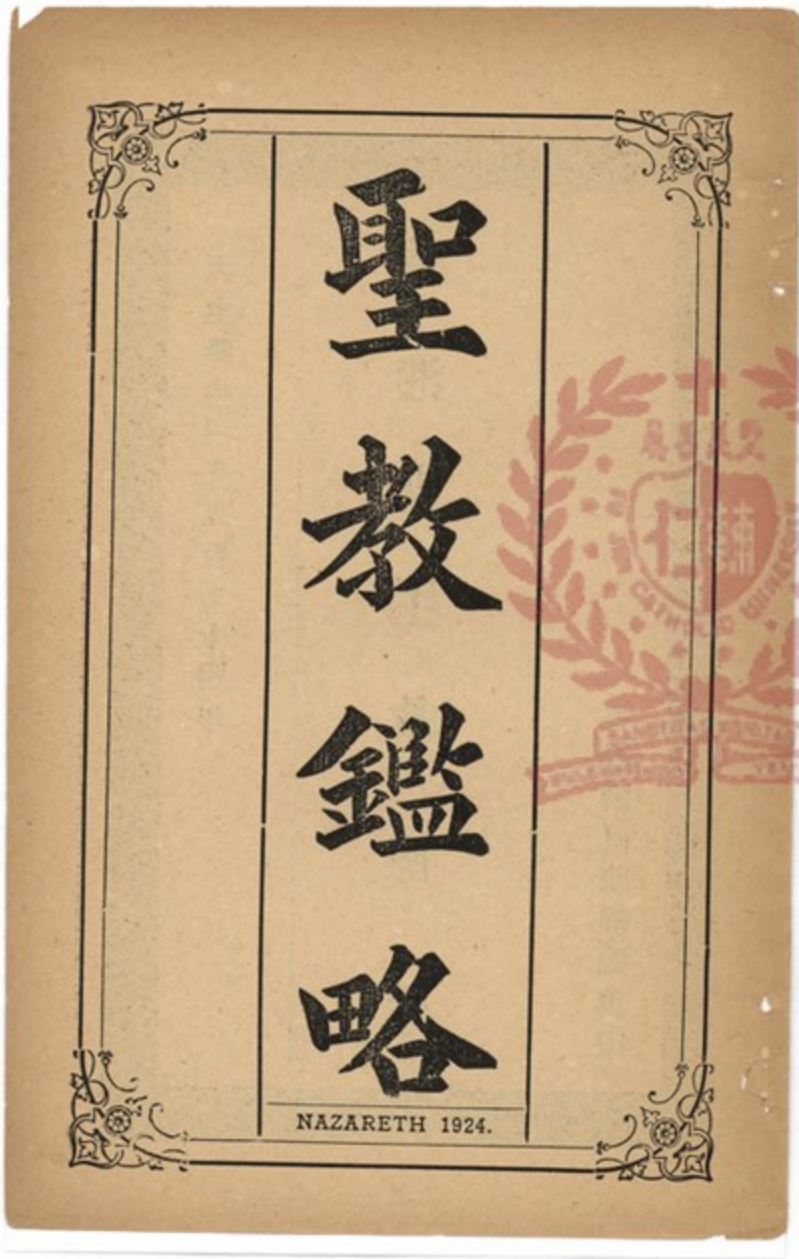 聖教鑑略
NAZARETH 1924.
輔仁
CATHOLIC UNIVERSITY